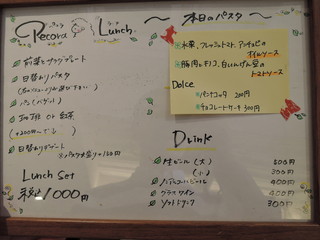 Pecora Lunch
前菜サラダプレート
日替わりパスタ
パン(バゲット)
珈琲 or 紅茶
日替わりデザート
Lunch Set
税込 1000円
~ 本日のパスタ ~
水菜、フレッシュトマト、アンチョビの
オイルソース
豚肉とキノコ、白いんげん豆の
トマトソース
Dolce
パンナコッタ 200円
チョコレートケーキ 300円
Drink
生ビール (大) 500円
(小) 300円
ノンアルコールビール 400円
グラスワイン 400円
ソフトドリンク 300円